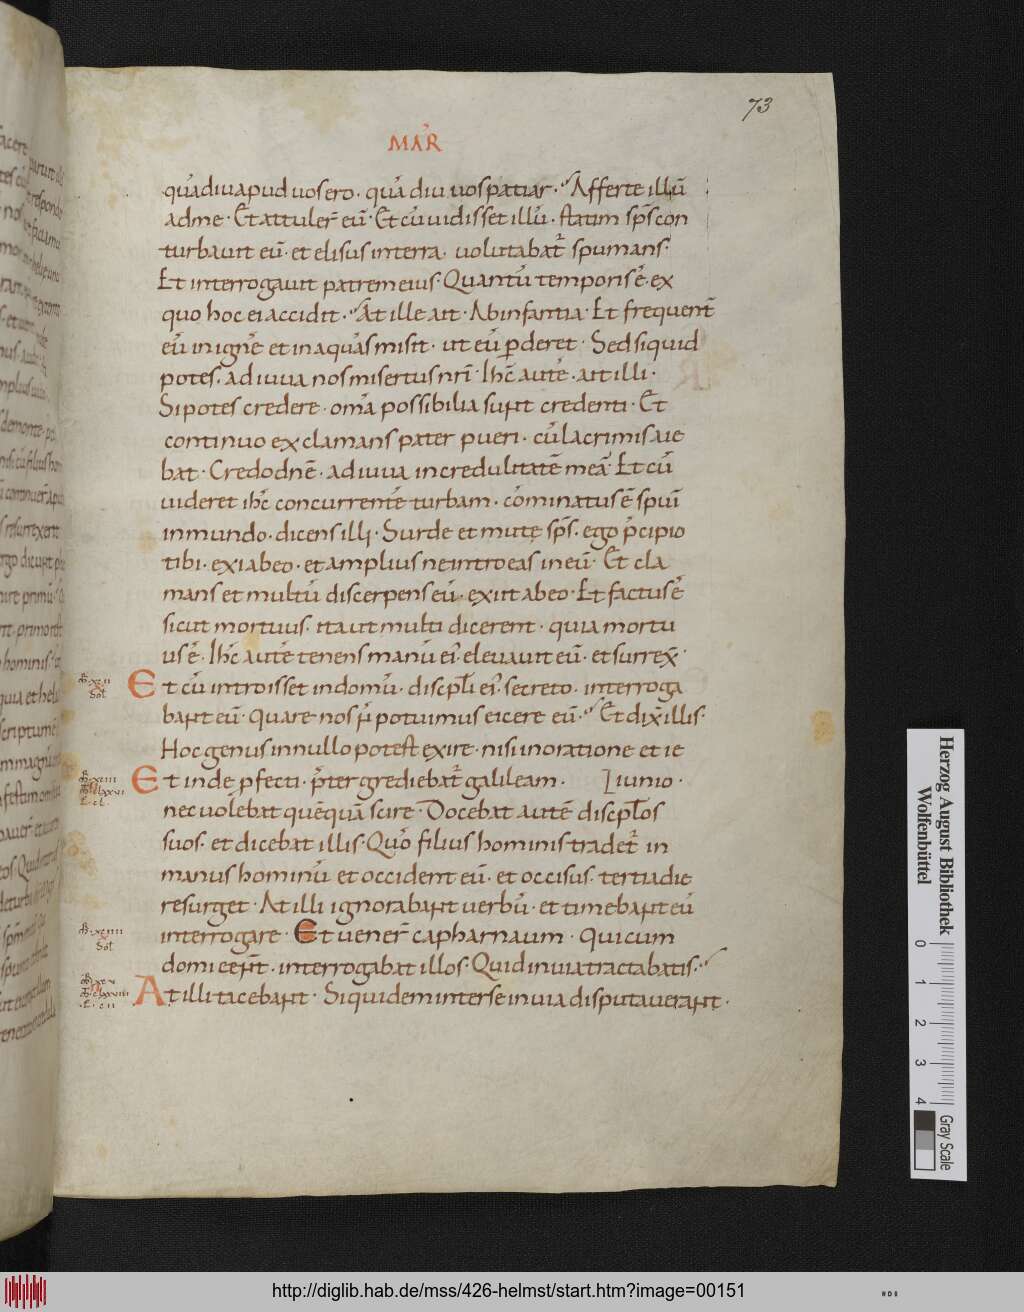 73
MAR̄
quādiu apud uos ero. quā diu uos patiar. Afferte illū
ad me. Et attuler̄ eū. Et cū uidisset illū. statim sp̄s con
turbauit eū. et elisus in terra. uolutabat᷑ spumans.
Et interrogauit patrem eius. Quantū temporis ē. ex
quo hoc ei accidit. At ille ait. Ab infantia. Et frequent̄
eū in ignē et in aquas misit. ut eū ꝑderet. Sed si quid
potes. adiuua nos misertus nr̄i. Ih̄c autē. ait illi.
Si potes credere. om̄a possibilia sunt credenti. Et
continuo exclamans pater pueri. cū lacrimis aie
bat. Credo dn̄e. adiuua incredulitatē meā. Et cū
uideret ih̄c concurrentē turbam. cōminatus ē spūi
inmundo. dicens illi. Surde et mute sp̄s. ego p̄cipio
tibi. exi ab eo. et amplius ne introeas in eū. Et cla
mans et multū discerpens eū. exiit ab eo. Et factus ē
sicut mortuus. ita ut multi dicerent. quia mortu
us ē. Ih̄c autē tenens manū ei᷒. eleuauit eū. et surrex̄.
Et cū introisset in domū. discipl̄i ei᷒. secreto. interroga
bant eū. Quare nos n̄ potuimus eicere eū. Et dix̄ illis.
Hoc genus in nullo potest exire. nisi in oratione et ie
Et inde ꝓfecti. p̄tergrediebat᷑ galileam. iunio.
nec uolebat quēquā scire. Docebat autē discipl̄os
suos. et dicebat illis. Quō filius hominis tradet᷑ in
manus hominū et occident eū. et occisus. tertia die
resurget. At illi ignorabant uerbū. et timebant eū
interrogare. Et uener̄ capharnaum. Qui cum
domi cēnt. interrogabat illos. Quid in uia tractabatis.
At illi tacebant. Siquidem inter se in uia disputauerant.
Herzog August Bibliothek
Wolfenbüttel
0 1 2 3 4
Gray Scale
http://diglib.hab.de/mss/426-helmst/start.htm?image=00151